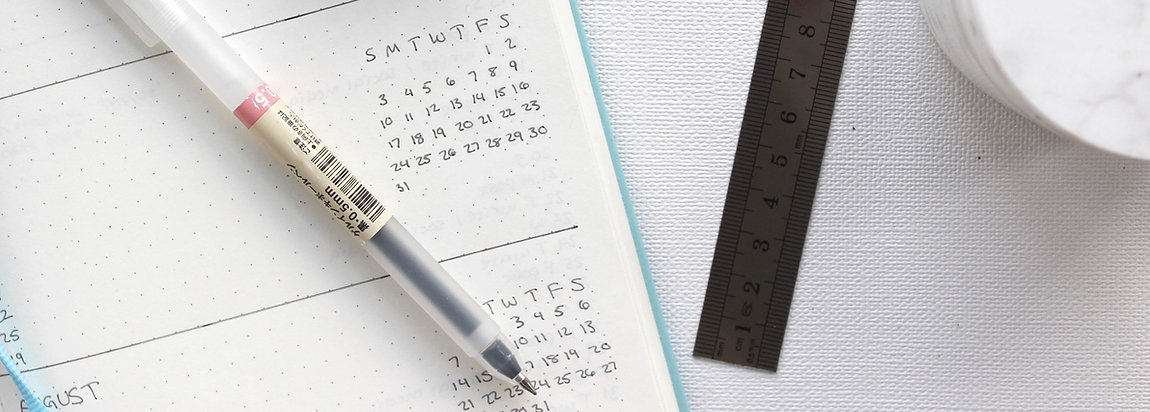 S M T W T F S
1 2
3 4 5 6 7 8 9
10 11 12 13 14 15 16
17 18 19 20 21 22 23
24 25 26 27 28 29 30
31
0.5
ゲルインキボールペン
黒・0.5mm
T W T F S
3 4 5 6
7 10 11 12 13
14 15 17 18 19 20
21 22 23 24 25 26 27
31
2
25
AUGUST
8
7
6
5
4
3
2
1
cm
mm
0.5mm
mm